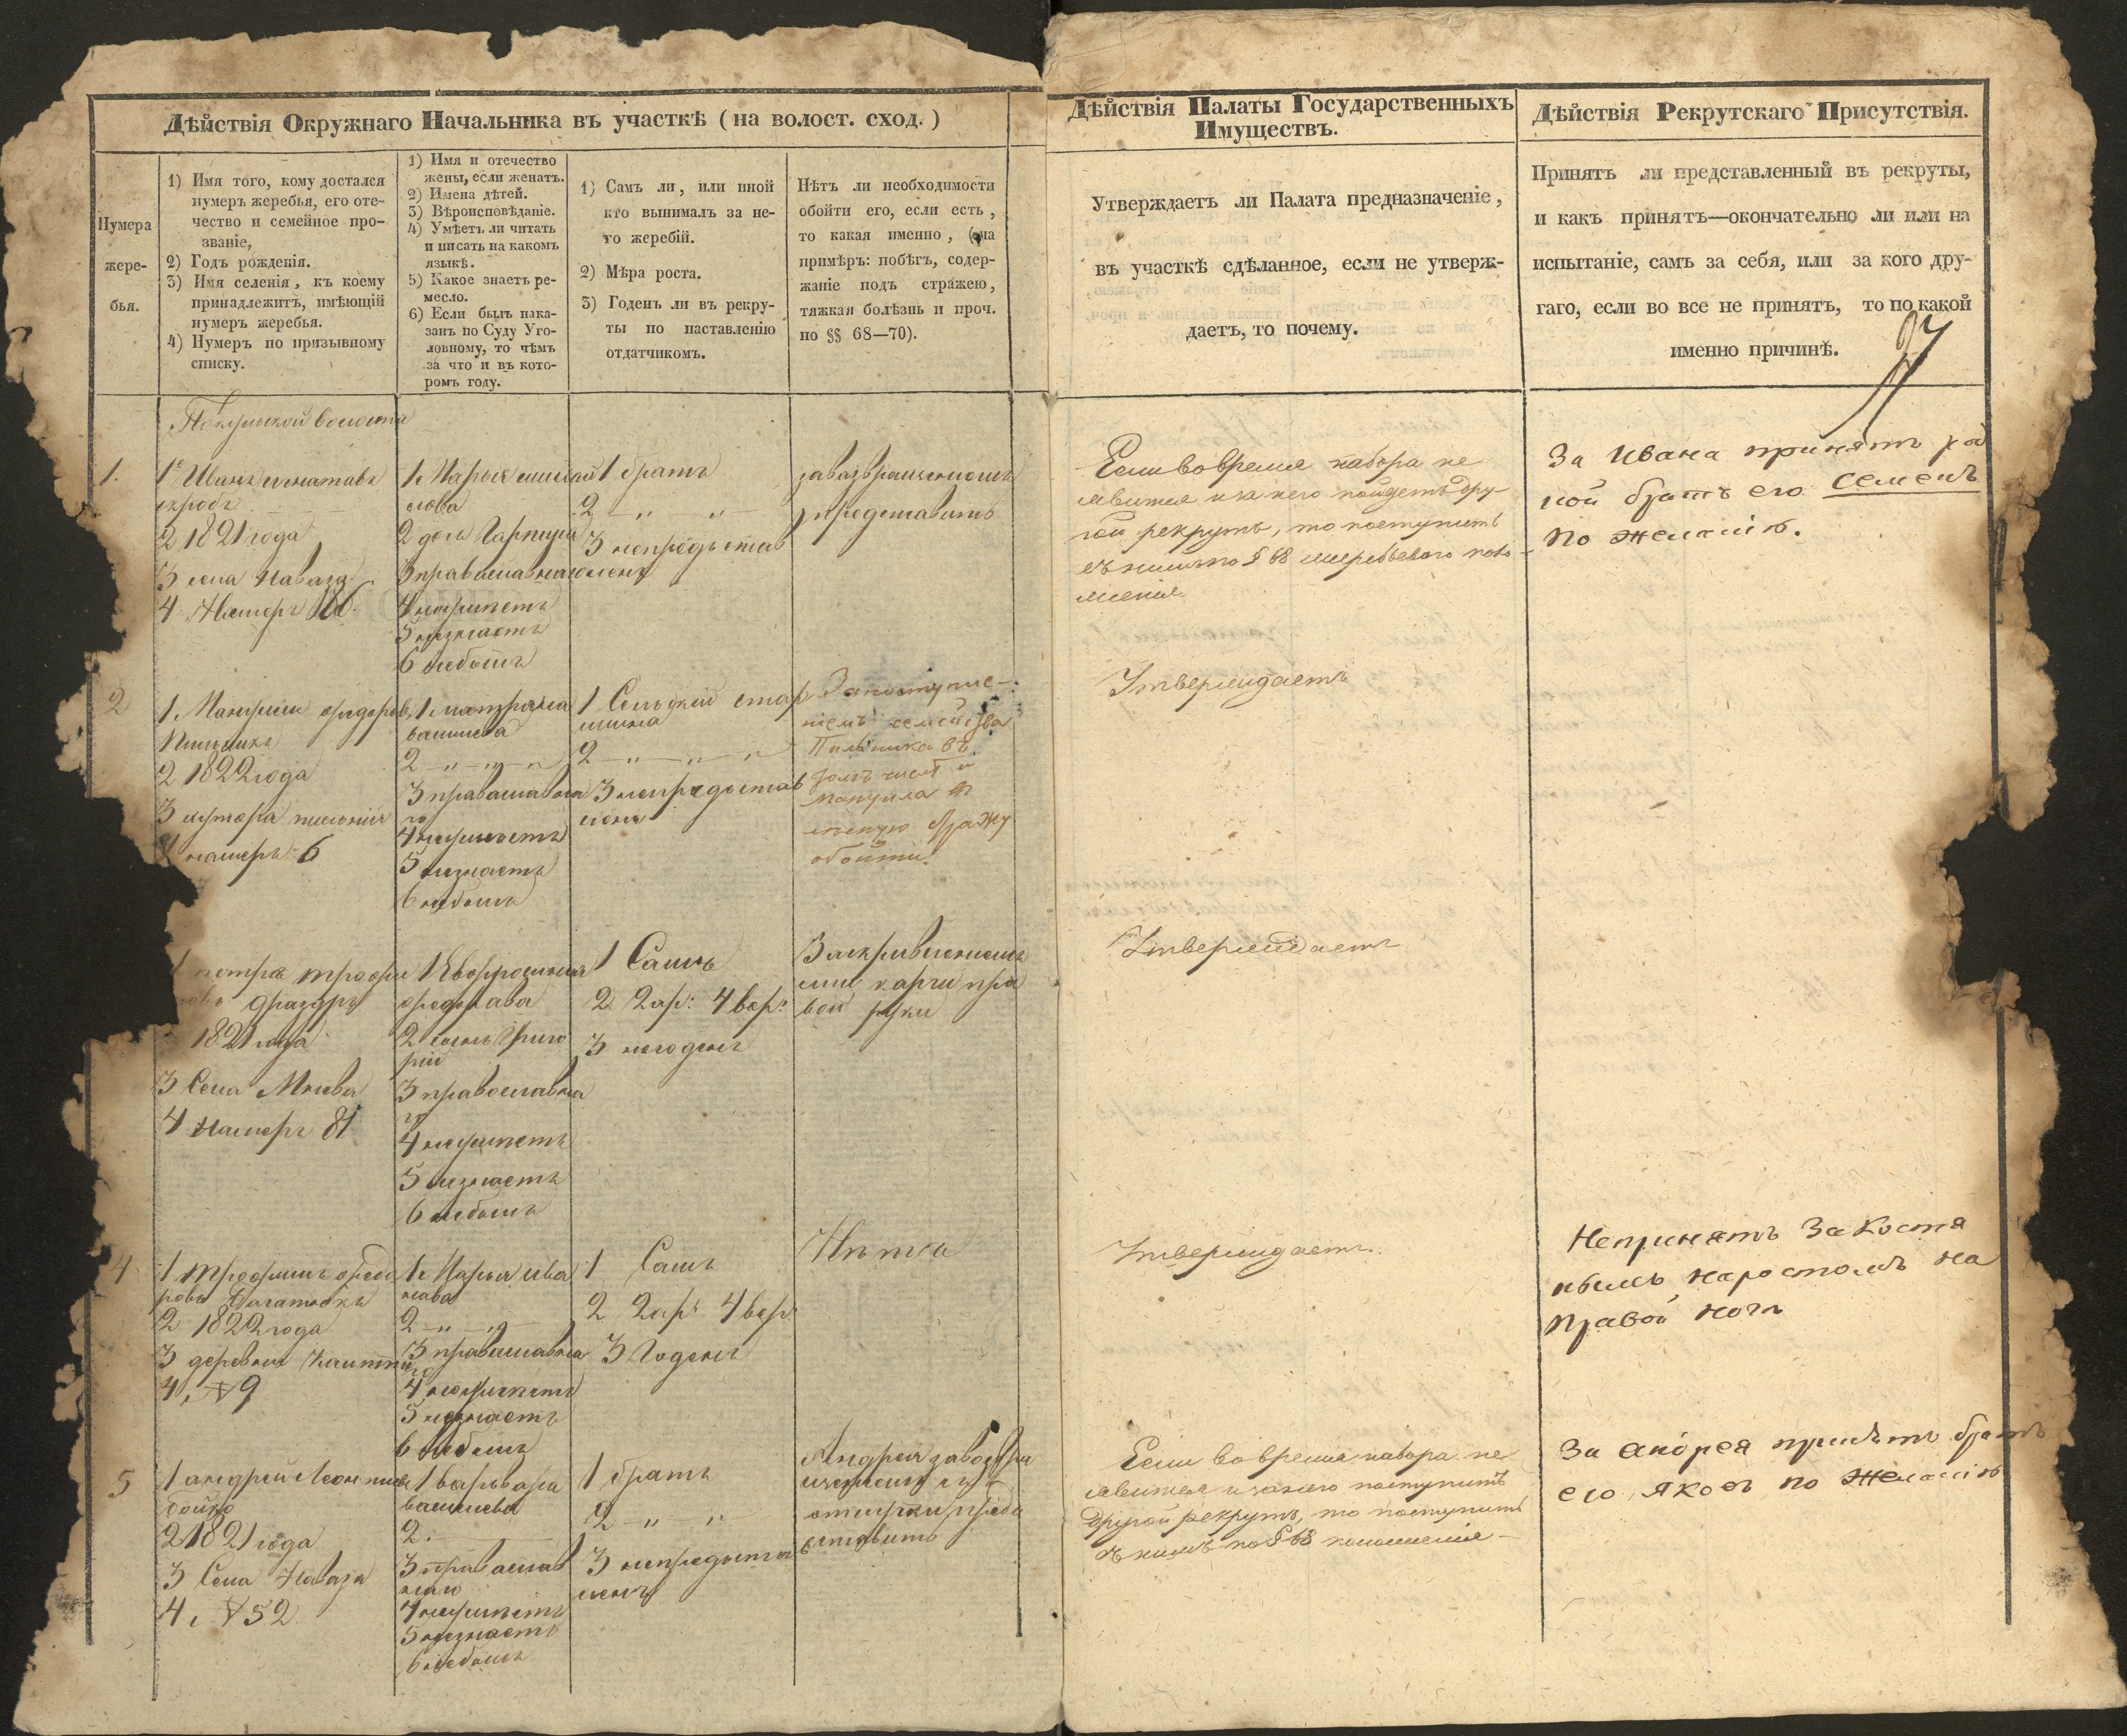 Дѣйствія Окружнаго Начальника въ участкѣ (на волост. сход.)
Нумера
жере-
бья.
1) Имя того, кому достался
нумеръ жеребья, его оте-
чество и семейное про-
званіе,
2) Годъ рожденія.
3) Имя селенія, къ коему
принадлежитъ, имѣющій
нумеръ жеребья.
4) Нумеръ по призывному
списку.
1) Имя и отечество
жены, если женатъ.
2) Имена дѣтей.
3) Вѣроисповѣданіе.
4) Умѣетъ ли читать
и писать на какомъ
языкѣ.
5) Какое знаетъ ре-
месло.
6) Если былъ нака-
занъ по Суду Уго-
ловному, то чѣмъ
за что и въ кото-
ромъ году.
1) Самъ ли, или иной
кто вынималъ за не-
го жеребій.
2) Мѣра роста.
3) Годенъ ли въ рекру-
ты по наставленію
отдатчикомъ.
Нѣтъ ли необходимости
обойти его, если есть,
то какая именно, (на
примѣръ: побѣгъ, содер-
жаніе подъ стражею,
тяжкая болѣзнь и проч.
по §§ 68—70).
Дѣйствія Палаты Государственныхъ
Имуществъ.
Утверждаетъ ли Палата предназначеніе,
въ участкѣ сдѣланное, если не утверж-
даетъ, то почему.
Дѣйствія Рекрутскаго Присутствія.
Принятъ ли представленный въ рекруты,
и какъ принятъ—окончательно ли или на
испытаніе, самъ за себя, или за кого дру-
гаго, если во все не принятъ, то по какой
именно причинѣ.
волости
1.
1 Иванъ игнатавъ
2 1821 года
3 села Наваза
4 Намеръ 86.
1 Марья
2 дочь
3 праваславнаго
4 неумпетъ
5 незнаетъ
6 небытъ
1 братъ
2 — „ „ —
3 непредъстав
ленъ
завазвращениемъ
представить
Если вовремя набора не
явится и за него пойдетъ дру-
гой рекрутъ, то поступить
съ нимъ по § 68 жеребьеваго поло-
женія
За Ивана принятъ род
ной братъ его Семенъ
по желанію.
2
1 Мануилъ федоровъ
2 1822 года
3 хутора
4 намеръ 6
1 матрона
васильева
2 — „ — „ — „
3 праваславна
го
4 неумпетъ
5 незнаетъ
6 небытъ
1 Сельскій стар
шина
2 — „ — „ — „
3 непредъстав
ленъ
За поступле-
ніемъ семейства
обойти.
Утверждаетъ
1 петръ трофи
мовъ
1821 года
3 Села Мнива
4 Намеръ 81
1 Евфросинья
федорава
2 сынъ Григо
рій
3 православна
го
4 неумпетъ
5 незнаетъ
6 небытъ
1 Самъ
2 2 ар: 4 вер:
3 негоденъ
За искривлениемъ
пра
вой руки
Утверждаетъ
4
1 трофимъ федо
ровъ
2 1822 года
3 деревни
4. № 9
1 Марья ива
нава
2 — „ — „ —
3 праваславна
го
4 неумпетъ
5 незнаетъ
6 небытъ
1 Самъ
2 2 ар 4 вер
3 Годенъ
Нѣтъ
Утверждаетъ.
Непринятъ за костя
нымъ наростомъ на
правой ногѣ
5
1 андрей
бойко
2 1821 года
3 Села Наваза
4. № 52
1 варвара
васильева
2. —
3 праваслав
наго
4 неумпетъ
5 незнаетъ
6 небытъ
1 братъ
2 — „ „ —
3 непредъстав
ленъ
Андрея завозвра
щениемъ изъ
отлучки предъ
ставить
Если во время набора не
явится и за него поступитъ
другой рекрутъ, то поступить
съ нимъ по § 68 положенія —
За Андрея принятъ братъ
его Яковъ по желанію